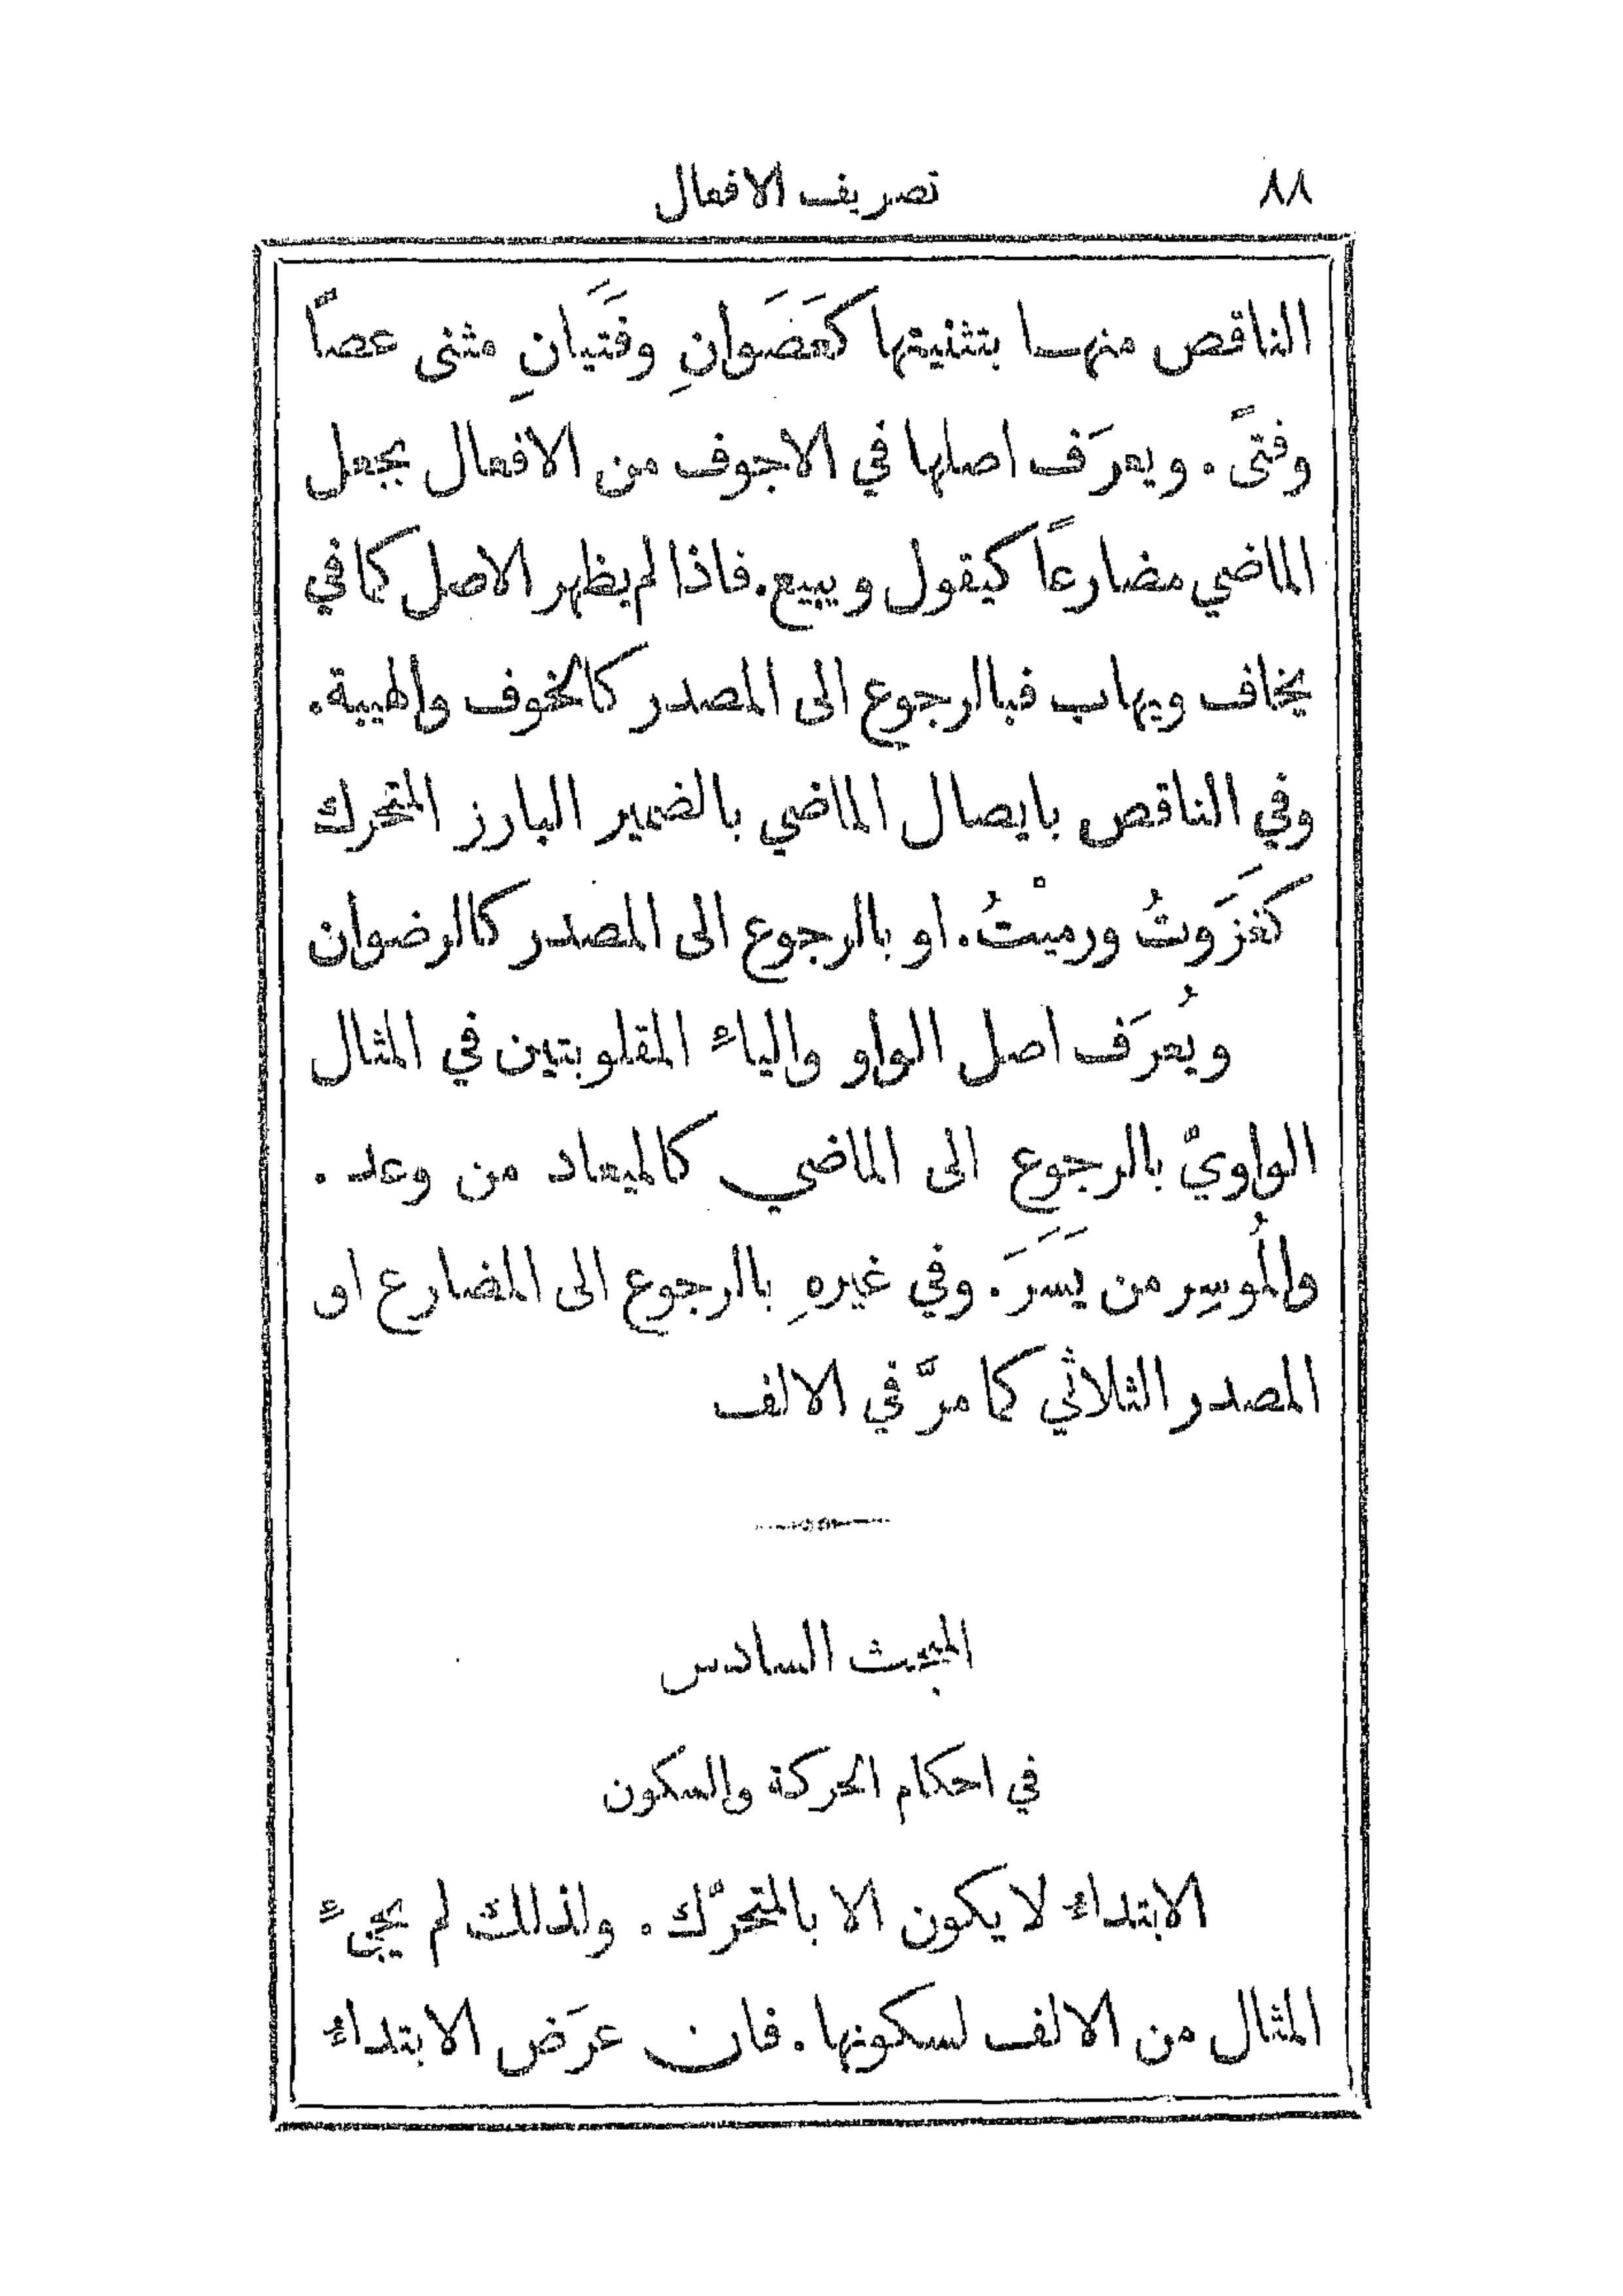 ٨٨ تصريف الافعال
الناقص منهـا بتثنيتها كعَصَوانِ وفَتَيانِ مثنى عصاً
وفتىً. ويعرَف اصلها في الاجوف من الافعال بجعل
الماضي مضارعاً كيقول ويبيع. فاذا لم يظهر الاصل كما في
يخاف ويهاب فبالرجوع الى المصدر كالخوف والهيبة.
وفي الناقص بايصال الماضي بالضمير البارز المتحرك
كغزَوتُ ورميْتُ. او بالرجوع الى المصدر كالرضوان
ويُعرَف اصل الواو والياء المقلوبتين في المثال
الواويّ بالرجوع الى الماضي كالميعاد من وعد.
والمُوسِر من يَسَرَ. وفي غيرهِ بالرجوع الى المضارع او
المصدر الثلاثي كما مرَّ في الالف
المبحث السادس
في احكام الحركة والسكون
الابتداء لا يكون الا بالمتحرّك. ولذلك لم يجئْ
المثال من الالف لسكونها. فان عرَض الابتداء